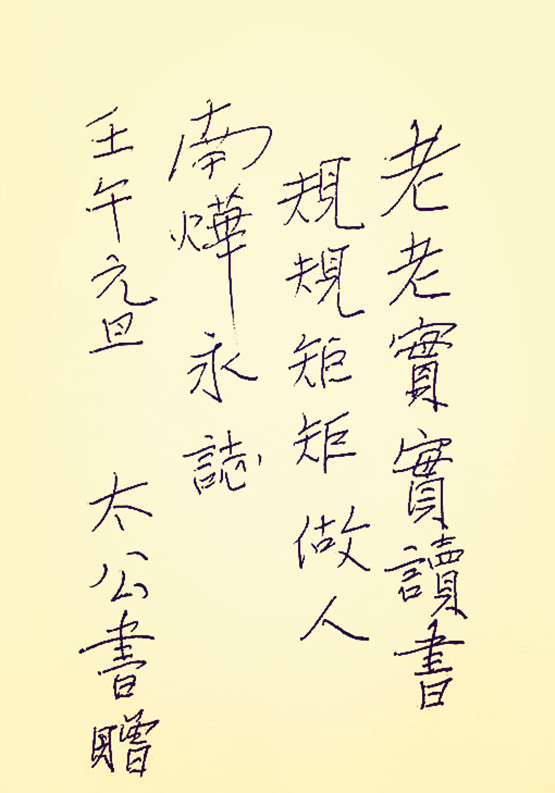 老老實實讀書
規規矩矩做人
南燁永誌
壬午元旦 太公書贈